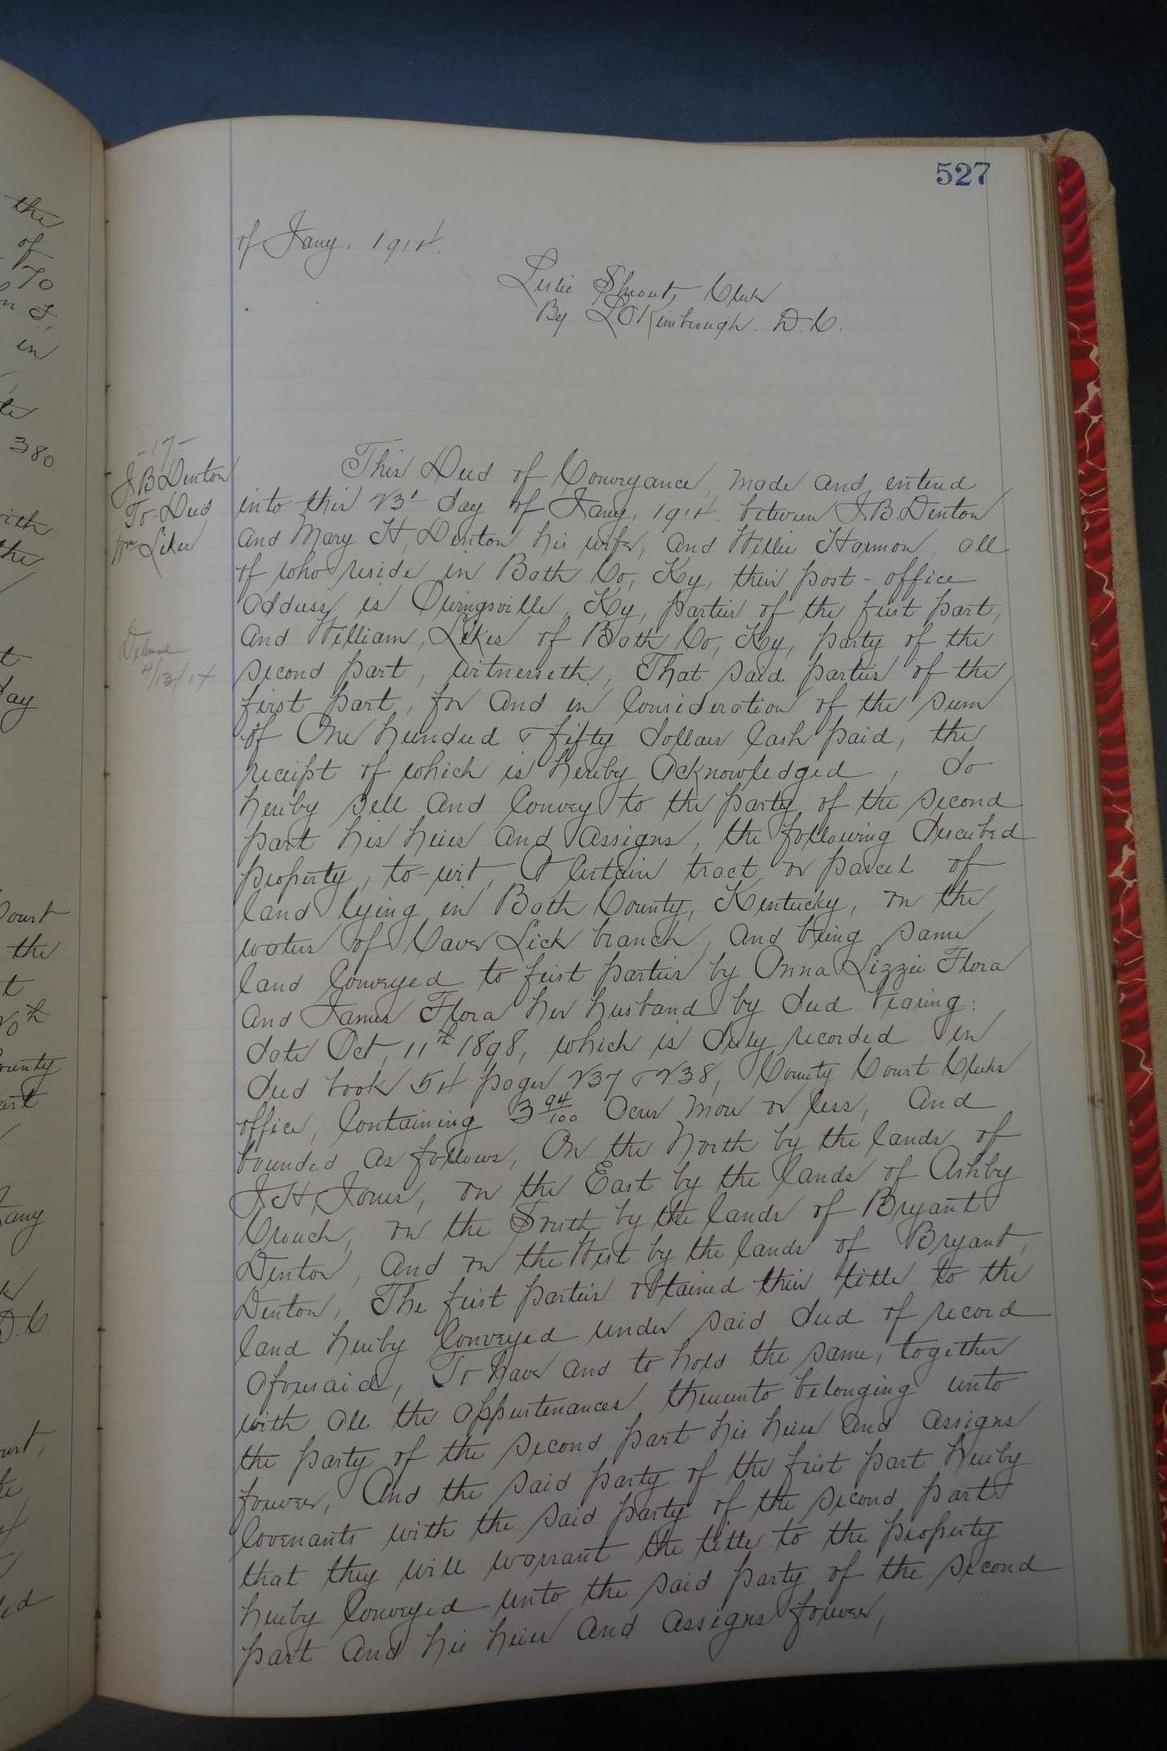 527
of Jany. 1914.
Leslie Shrout, Clerk
By Kimbrough. D.C.
-17-
J.B Denton
To-Deed
Wm Likes
4/13/14
This Deed of Conveyance, made and entered
into this 23d day of Jany, 1914. between J.B. Denton
and Mary H, Denton his wife, and Willie Harmon, all
of who reside in Bath Co, Ky, their post-office
address, is Owingsville, Ky, parties of the first part,
and William, Likes of Bath Co, Ky, party of the
second part, witnesseth, That said parties of the
first part, for and in Consideration of the sum
of One hundred & fifty dollars Cash paid, the
receipt of which is hereby acknowledged, do
hereby sell and Convey to the party of the second
part his heirs and assigns, the following described
property, to-wit, A Certain tract or parcel of
land lying in Bath County, Kentucky, on the
waters of Caver Lick branch, and being same
land Conveyed to first parties by Anna Lizzie Flora
and James Flora her husband by deed bearing:
date Oct, 11th 1898, which is duly recorded in
deed book 54 pages 237 & 238, County Court Clerks
office, Containing 3 94/100 acres more or less, and
bounded as follows, On the North by the lands of
J.H. Jones, on the East by the lands of Ashby
Crouch, on the South by the lands of Bryant
Denton, and on the West by the lands of Bryant,
Denton, The first parties obtained their title to the
land hereby Conveyed under said deed of record
aforesaid, To have and to hold the same, together
with all the appurtenances thereunto belonging unto
the party of the second part his heirs and assigns
forever, And the said party of the first part hereby
Covenants with the said party of the second part
that they will warrant the title to the property
hereby Conveyed unto the said party of the second
part and his heirs and assigns forever,